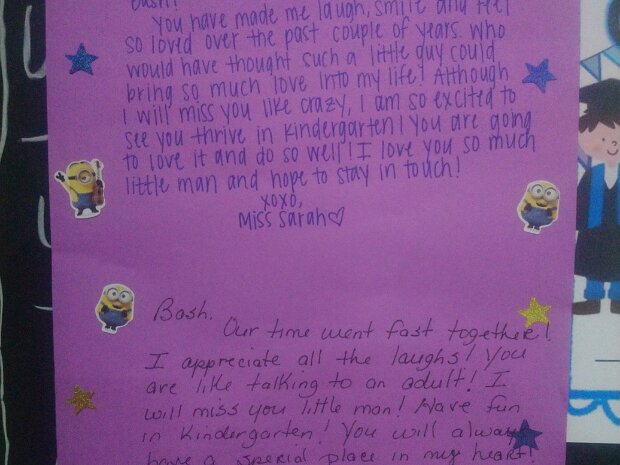 Bash!
You have made me laugh, smile and feel
so loved over the past couple of years. Who
would have thought such a little guy could
bring so much love into my life! Although
I will miss you like crazy, I am so excited to
see you thrive in kindergarten! You are going
to love it and do so well! I love you so much
little man and hope to stay in touch!
xoxo,
Miss Sarah♡
Bash.
Our time went fast together!
I appreciate all the laughs! You
are like talking to an adult! I
will miss you little man! Have fun
in Kindergarten! You will always
have a special place in my heart!